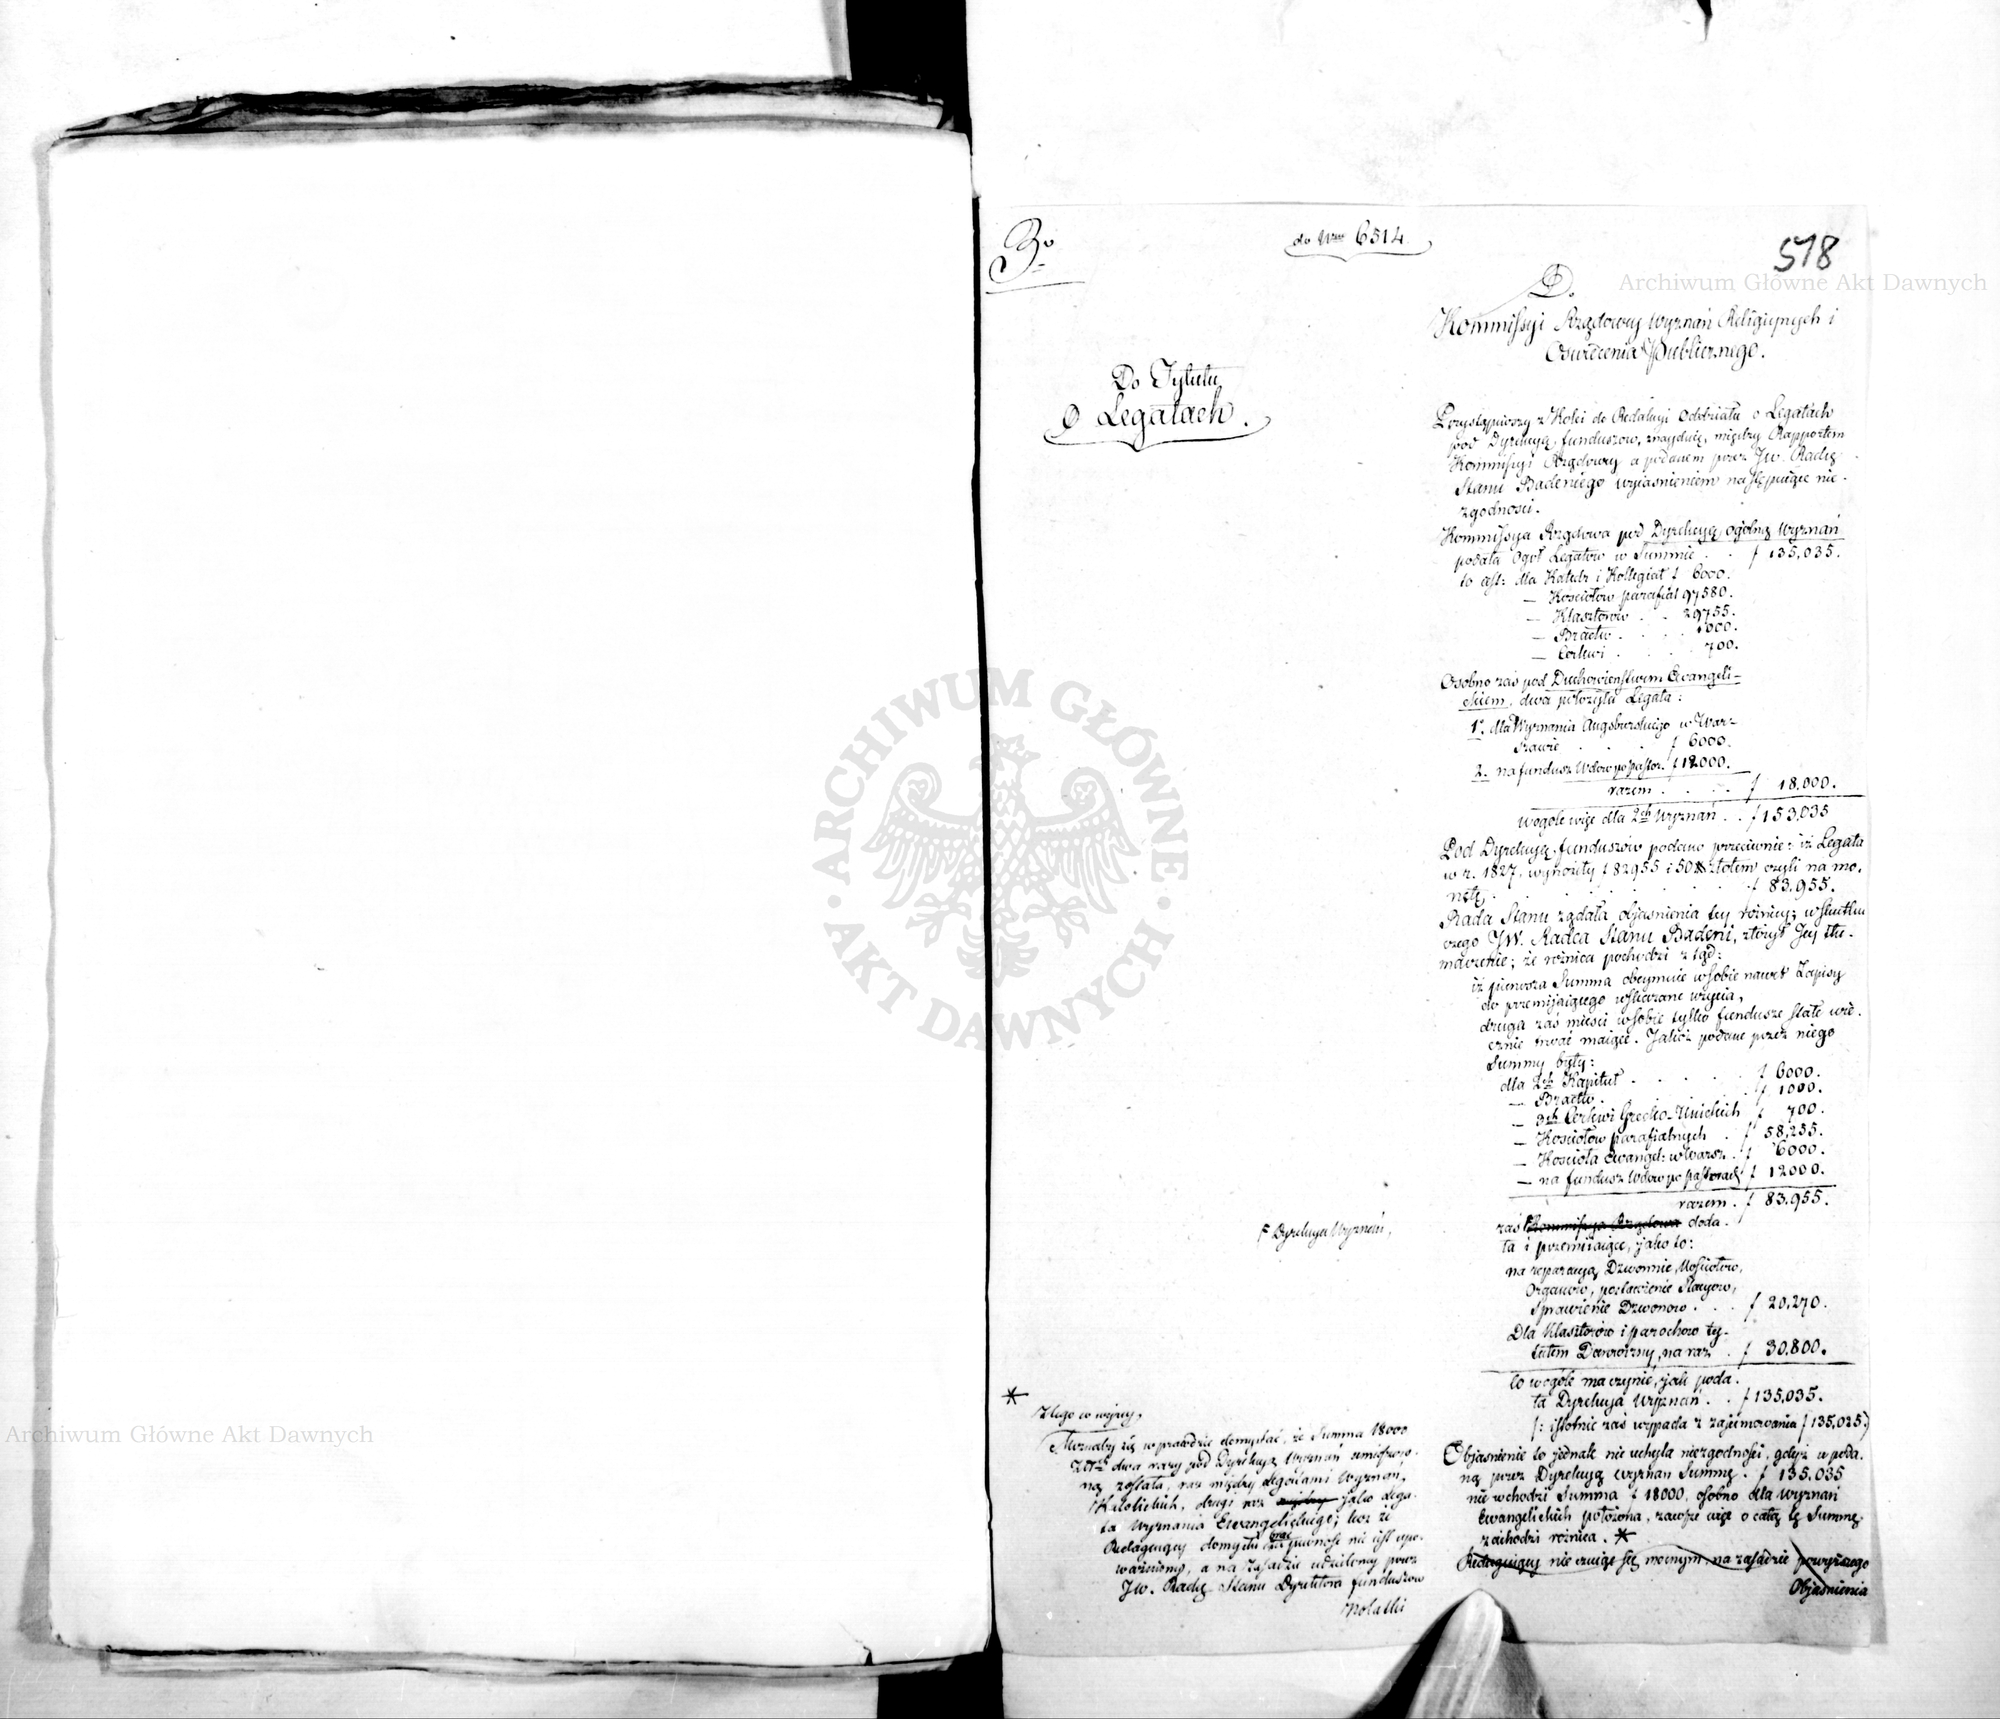 3o
do Nru 6514.
518
Do Tytułu
O Legatach.
D.
Kommissyi Rządowey Wyznań Religiynych i
Oświecenia Publicznego.
Przystąpiwszy z Kolei do Redakcyi Oddziału o Legatach
pod Dyrekcyą funduszow, znayduię, między Rapportem
Kommissyi Rządowey a podanem przez JW. Radcę
Stanu Badeniego wyiaśnieniem następuiące nie-
zgodności.
Kommissya Rządowa pod Dyrekcyą ogólną Wyznań
podała Ogół Legatow w Summie . . f 135,035.
to iest: dla Katedr i Kollegiat f 6000.
— Kościołow parafial 97580.
— Klasztorow . . 29755.
— Bractw . . . . 1000.
— Cerkwi . . . . 700.
Osobno zaś pod Duchowieństwem Ewangeli-
skiem, dwa położyła Legata:
1o. dla Wyznania Augsburskiego w War-
szawie . . . . f 6000.
2. na fundusz Wdow po Pastor. f 12000.
razem . . . . f 18,000.
wogóle więc dla 2ch Wyznań . . f 153,035
Pod Dyrekcyą funduszów podano przeciwnie: iż Legata
w r. 1827, wynosiły f 82955 i 50 # złotem czyli na mo-
netę . . . . . . f 83,955.
Rada Stanu żądała objaśnienia tey różnicy; wskutku
czego JW. Radca Stanu Badeni, złożył Jey tłu-
maczenie; że różnica pochodzi ztąd:
iż pierwsza Summa obeymuie wsobie nawet Zapisy
do przemijaiącego wskazane użycia,
druga zaś mieści wsobie tylko fundusze stałe wie-
cznie trwać maiące. Jakoż podane przez niego
Summy były:
dla 2ch Kapituł . . . . . f 6000.
— Bractw . . . . . f 1000.
— 3ch Cerkwi Grecko-Unickich f 700.
— Kościołow parafialnych . f 58,255.
— Kościoła Ewangel: w Warsz. f 6000.
— na fundusz Wdow po Pastorach f 12000.
razem . f 83,955.
f Dyrekcya Wyznań,
zaś Kommissya Rządowa doda-
ła i przemijaiące, jako to:
na reparacyą Dzwonnic, Kościołow,
Organow, postawienie Stacyow,
Sprawienie Dzwonow . . . f 20,270.
Dla Klasztorów i parochow ty-
tułem Darowizny, na raz . f 30,800.
to wogóle ma czynić, jak poda-
ła Dyrekcya Wyznań . . f 135,035.
/: istotnie zaś wypada z zajumowania f 135,025./
Objaśnienie to jednak nie uchyla niezgodności, gdyż w poda-
ną przez Dyrekcyą wyznań Summę . f 135,035
nie wchodzi Summa f 18000, osobno dla wyznań
Ewangelickich położona, zawsze więc o całą tę Summę
zachodzi różnica. *
Redaguiący nie czuiąc się mocnym, na zasadzie powyższego
Objaśnienia
*
Z tego co wyżey,
Możnaby się wprawdzie domyślać, że Summa 18000
Złch dwa razy pod Dyrekcyą Wyznań umieszczo-
ną została, raz między Legatami Wyznań
Katolickich, drugi raz między jako Lega-
ta Wyznania Ewangelickiego; lecz że
Redaguiący domysłu brać za pewność nie iest upo-
ważniony, a na Zasadzie udzieloney przez
JW. Radcę Stanu Dyrektora funduszow
Notatki
Archiwum Główne Akt Dawnych
ARCHIWUM GŁÓWNE · AKT DAWNYCH ·
Archiwum Główne Akt Dawnych